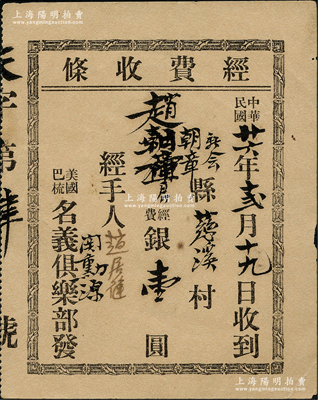 上海陽明拍賣
www.ymauction.com
經費收條
中華民國廿六年弍月十九日收到
新会縣慈溪村
趙朝章
經費銀壹圓
經手人趙居健
関勳源
美國巴梳名義俱樂部發
字第 號
上海陽明拍賣
www.ymauction.com